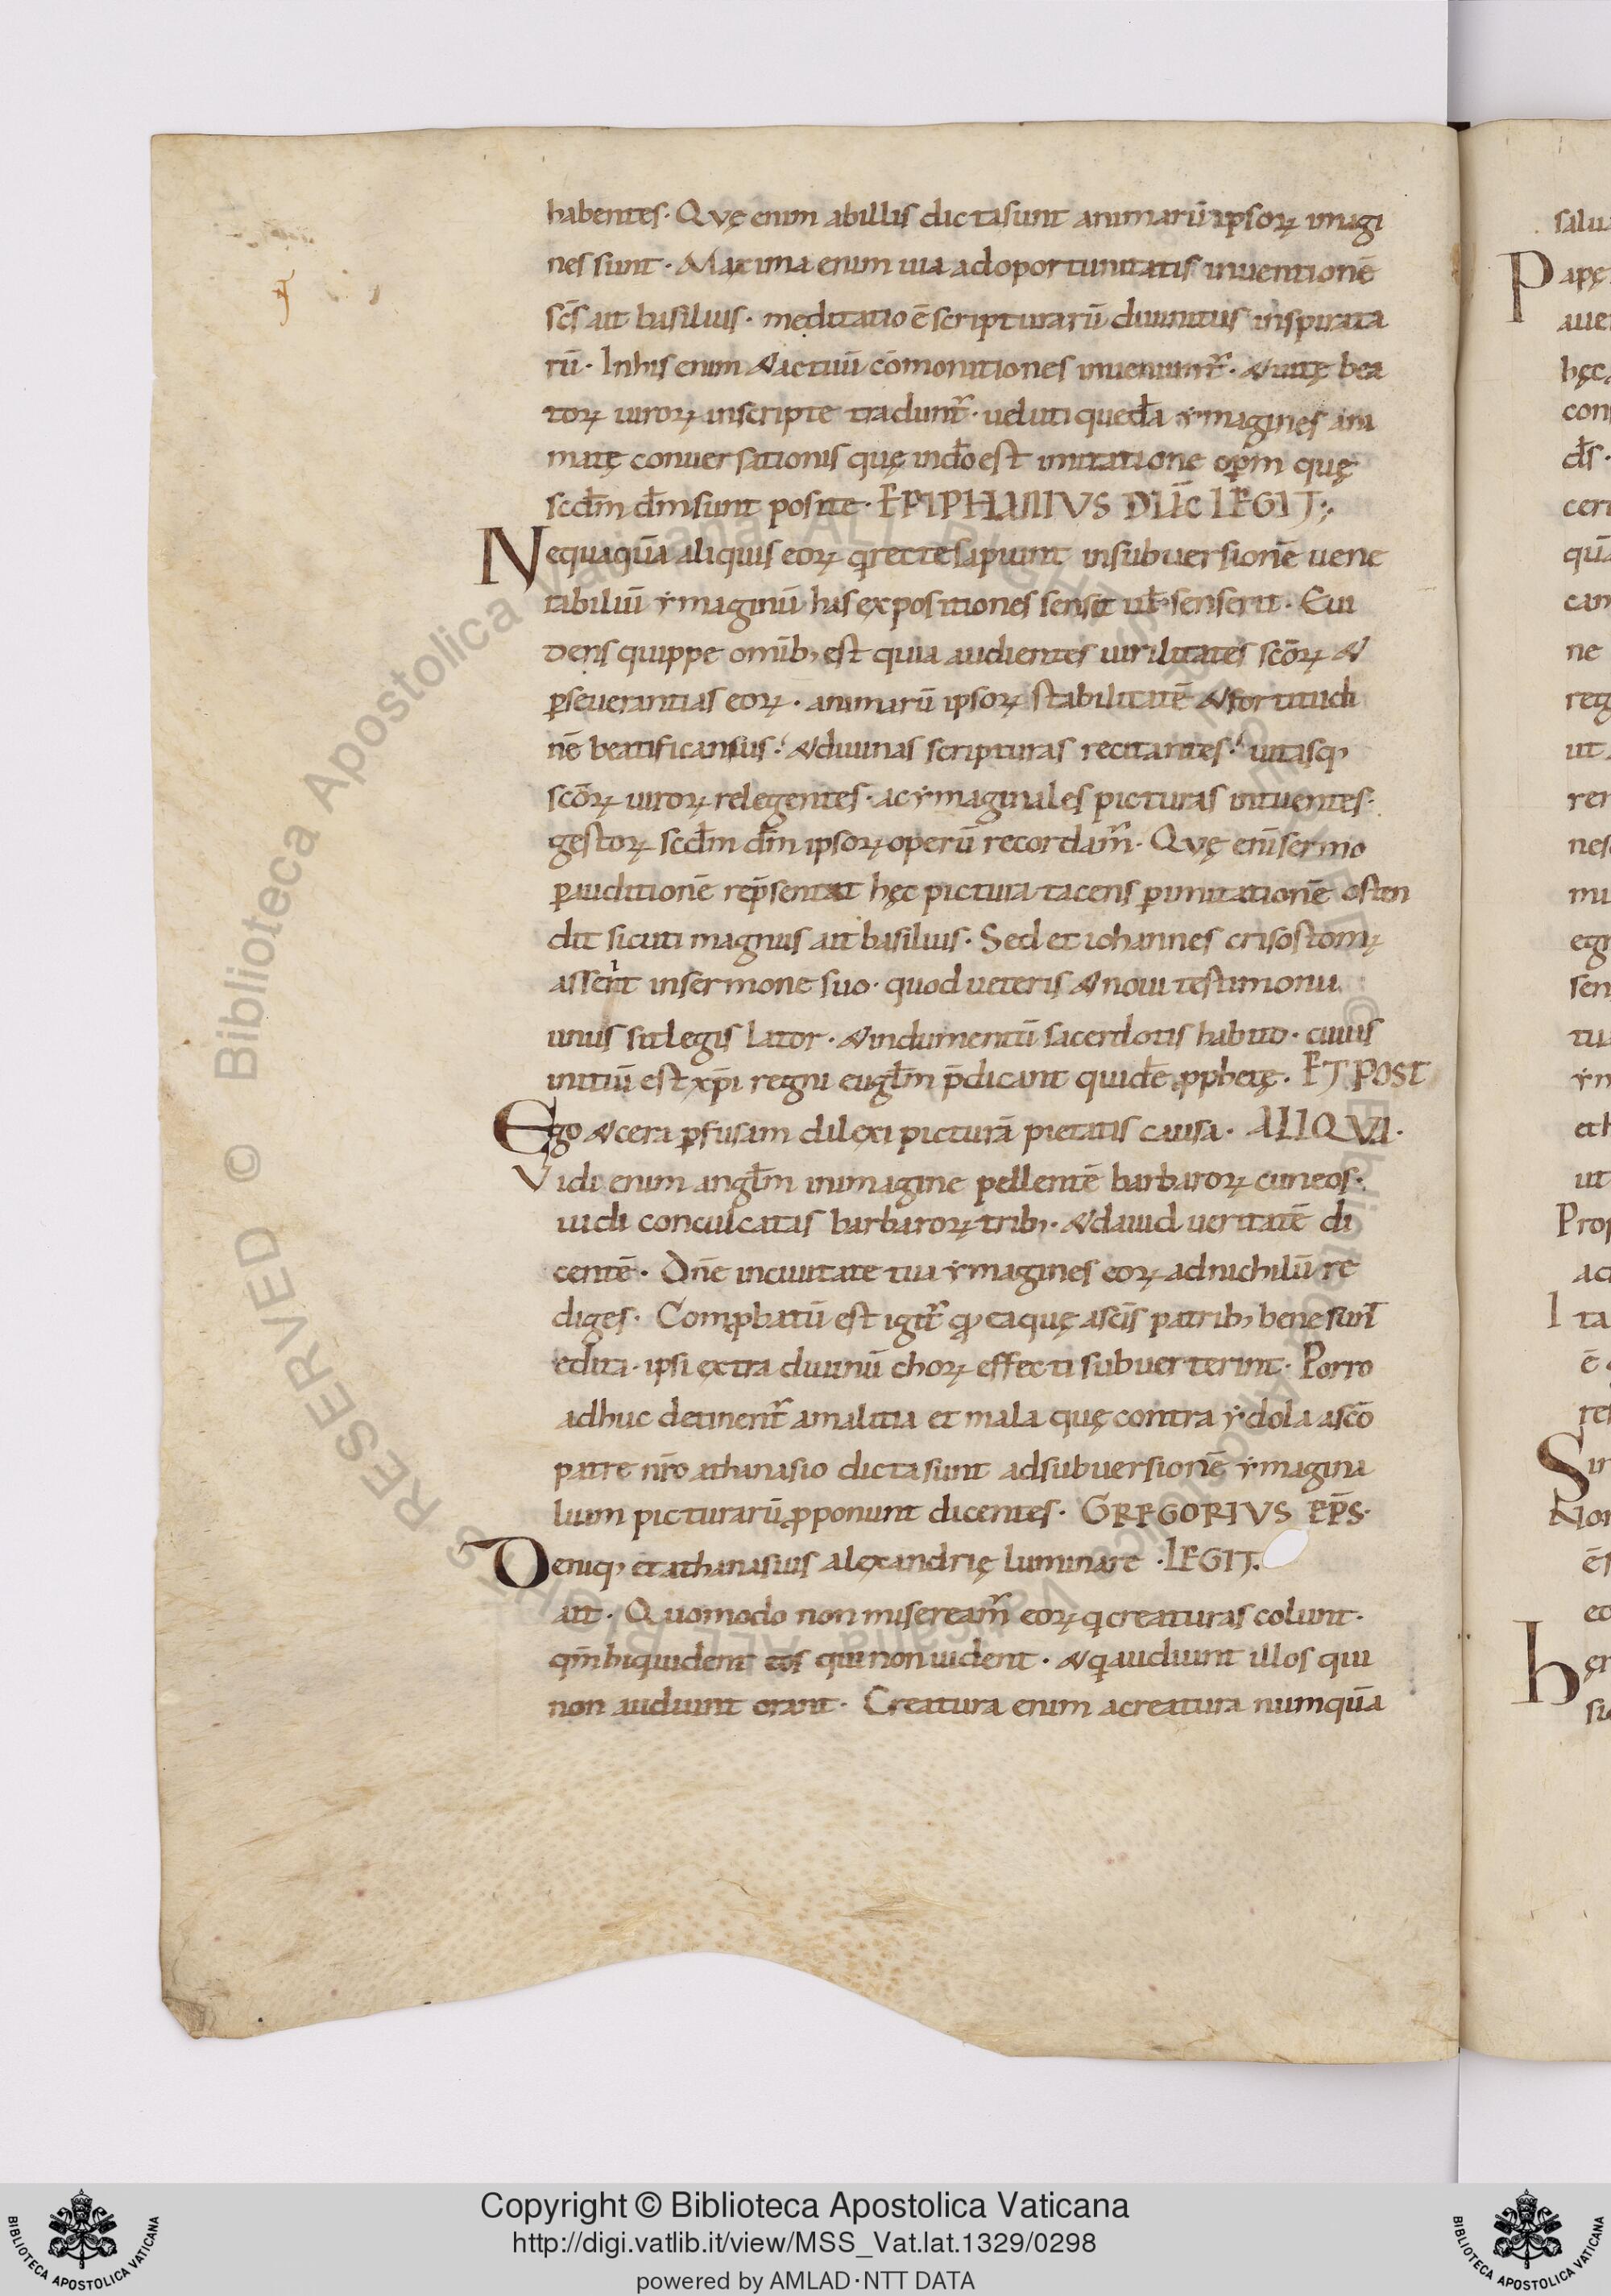 habentes. Quę enim abillis dictasunt animarū ipsoꝝ imagi
nes sunt. Maxima enim uia adoportunitatis inuentionē
sc̄s ait basilius. meditatio ē scripturarū diuinitus inspirata
rū. Inhis enim & actuū cōmonitiones inueniunt᷑. & uitę bea
toꝝ uiroꝝ inscripte tradunt᷑. uelut i quedā ymagines ani
matę conuersationis quę indō est imitatione oꝑm quę
scdm̄ dm̄ sunt posite. EPIPHANIVS DIAC̄ LEGIT:
Nequaquā aliquis eoꝝ qͥ recte sapiunt insubuersionē uene
rabiliū ymaginū has expositiones sensit ul̄ senserit. Eui
dens quippe omīb; est quia audientes uirilitates scōꝝ &
ꝑseuerantias eoꝝ. animarū ipsoꝝ stabilitatē & fortitudi
nē beatificamus. & diuinas scripturas recitantes. uitasq;
scōꝝ uiroꝝ relegentes. ac ymaginales picturas intuentes.
gestoꝝ scdm̄ dm̄ ipsoꝝ operū recordam᷑. Quę enī sermo
ꝑ auditionē rep̄sentat hęc pictura tacens ꝑ imitationē osten
dit sicuti magnus ait basilius. Sed et iohannes crisostomꝰ
asserit insermone suo. quod ueteris & noui testimonii
unus sit legis lator. & indumentū sacerdotis habito. cuius
initiū est xp̄i regni eugl̄m p̄dicant quidē ꝓphetę. ET POST
Ego & cera ꝑfusam dilexi picturā pietatis causa. ALIQVA.
Vidi enim angl̄m inimagine pellentē barbaroꝝ cuneos.
uidi conculcatas barbaroꝝ trib;. & dauid ueritatē di
centē. Dn̄e inciuitate tua ymagines eoꝝ adnichilū re
diges. Comꝓbatū est igit᷑ q; eaquę asc̄is patrib; bene sunt
edita. ipsi extra diuinū choꝝ effecti subuerterint. Porro
adhuc detinent᷑ amalitia et mala quę contra ydola ascō
patre nr̄o athanasio dicta sunt adsubuersionē ymagina
lium picturarū ꝓponunt dicentes. GREGORIVS EP̄S.
Deniq; et athanasius alexandrię luminare .LEGIT.
ait. Quomodo non miseream᷑ eoꝝ qͥ creaturas colunt.
qm̄ hi qui uident eos qui non uident. & qͥ audiunt illos qui
non audiunt orant. Creatura enim acreatura numquā
Copyright © Biblioteca Apostolica Vaticana
http://digi.vatlib.it/view/MSS_Vat.lat.1329/0298
powered by AMLAD·NTT DATA